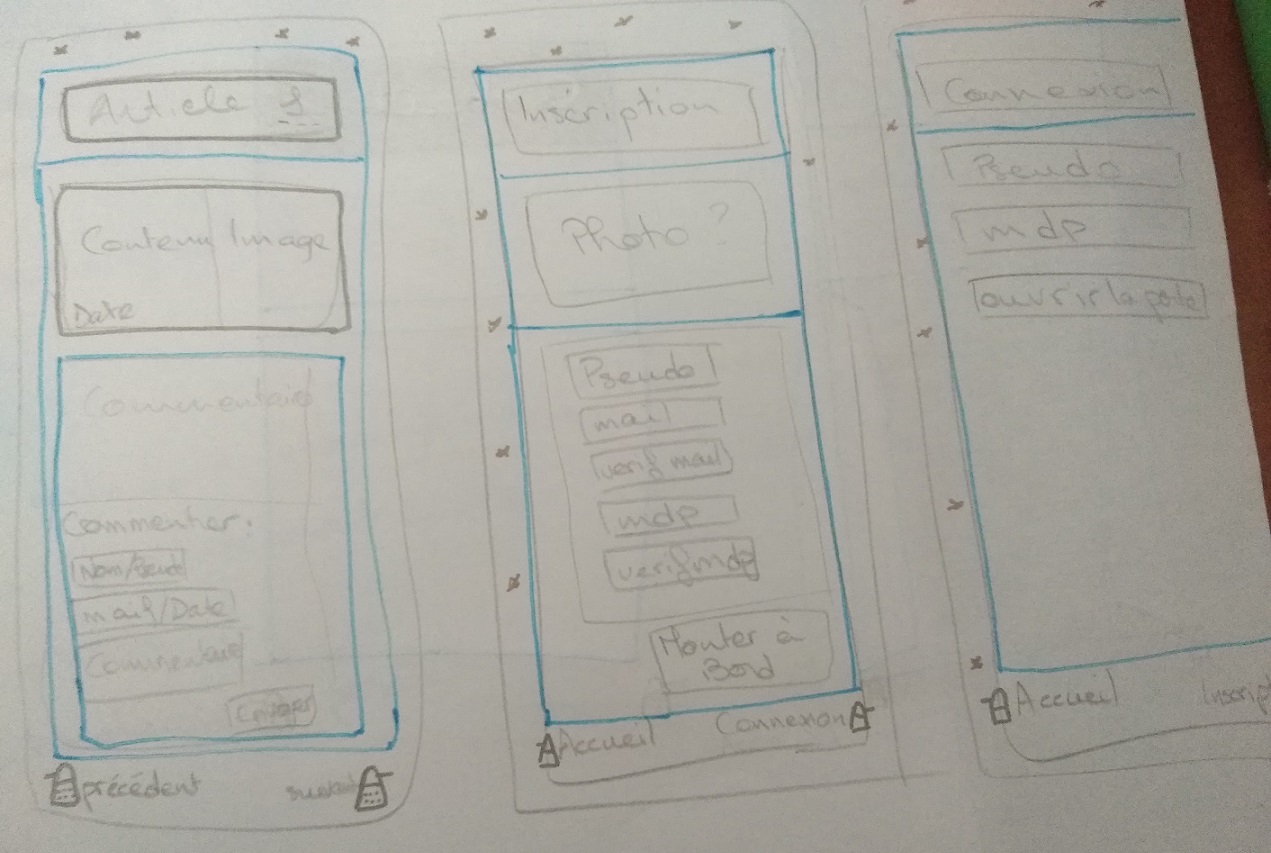 Article 1
Contenu Image
Date
Commentaire
Commenter.
Nom/Pseudo
mail/Date
Commentaire
Envoyer
précédent
suivant
Inscription
Photo ?
Pseudo
mail
verif mail
mdp
verif mdp
Monter à
Bord
Accueil
Connexion
Connexion
Pseudo
mdp
ouvrir la porte
Accueil
Inscript